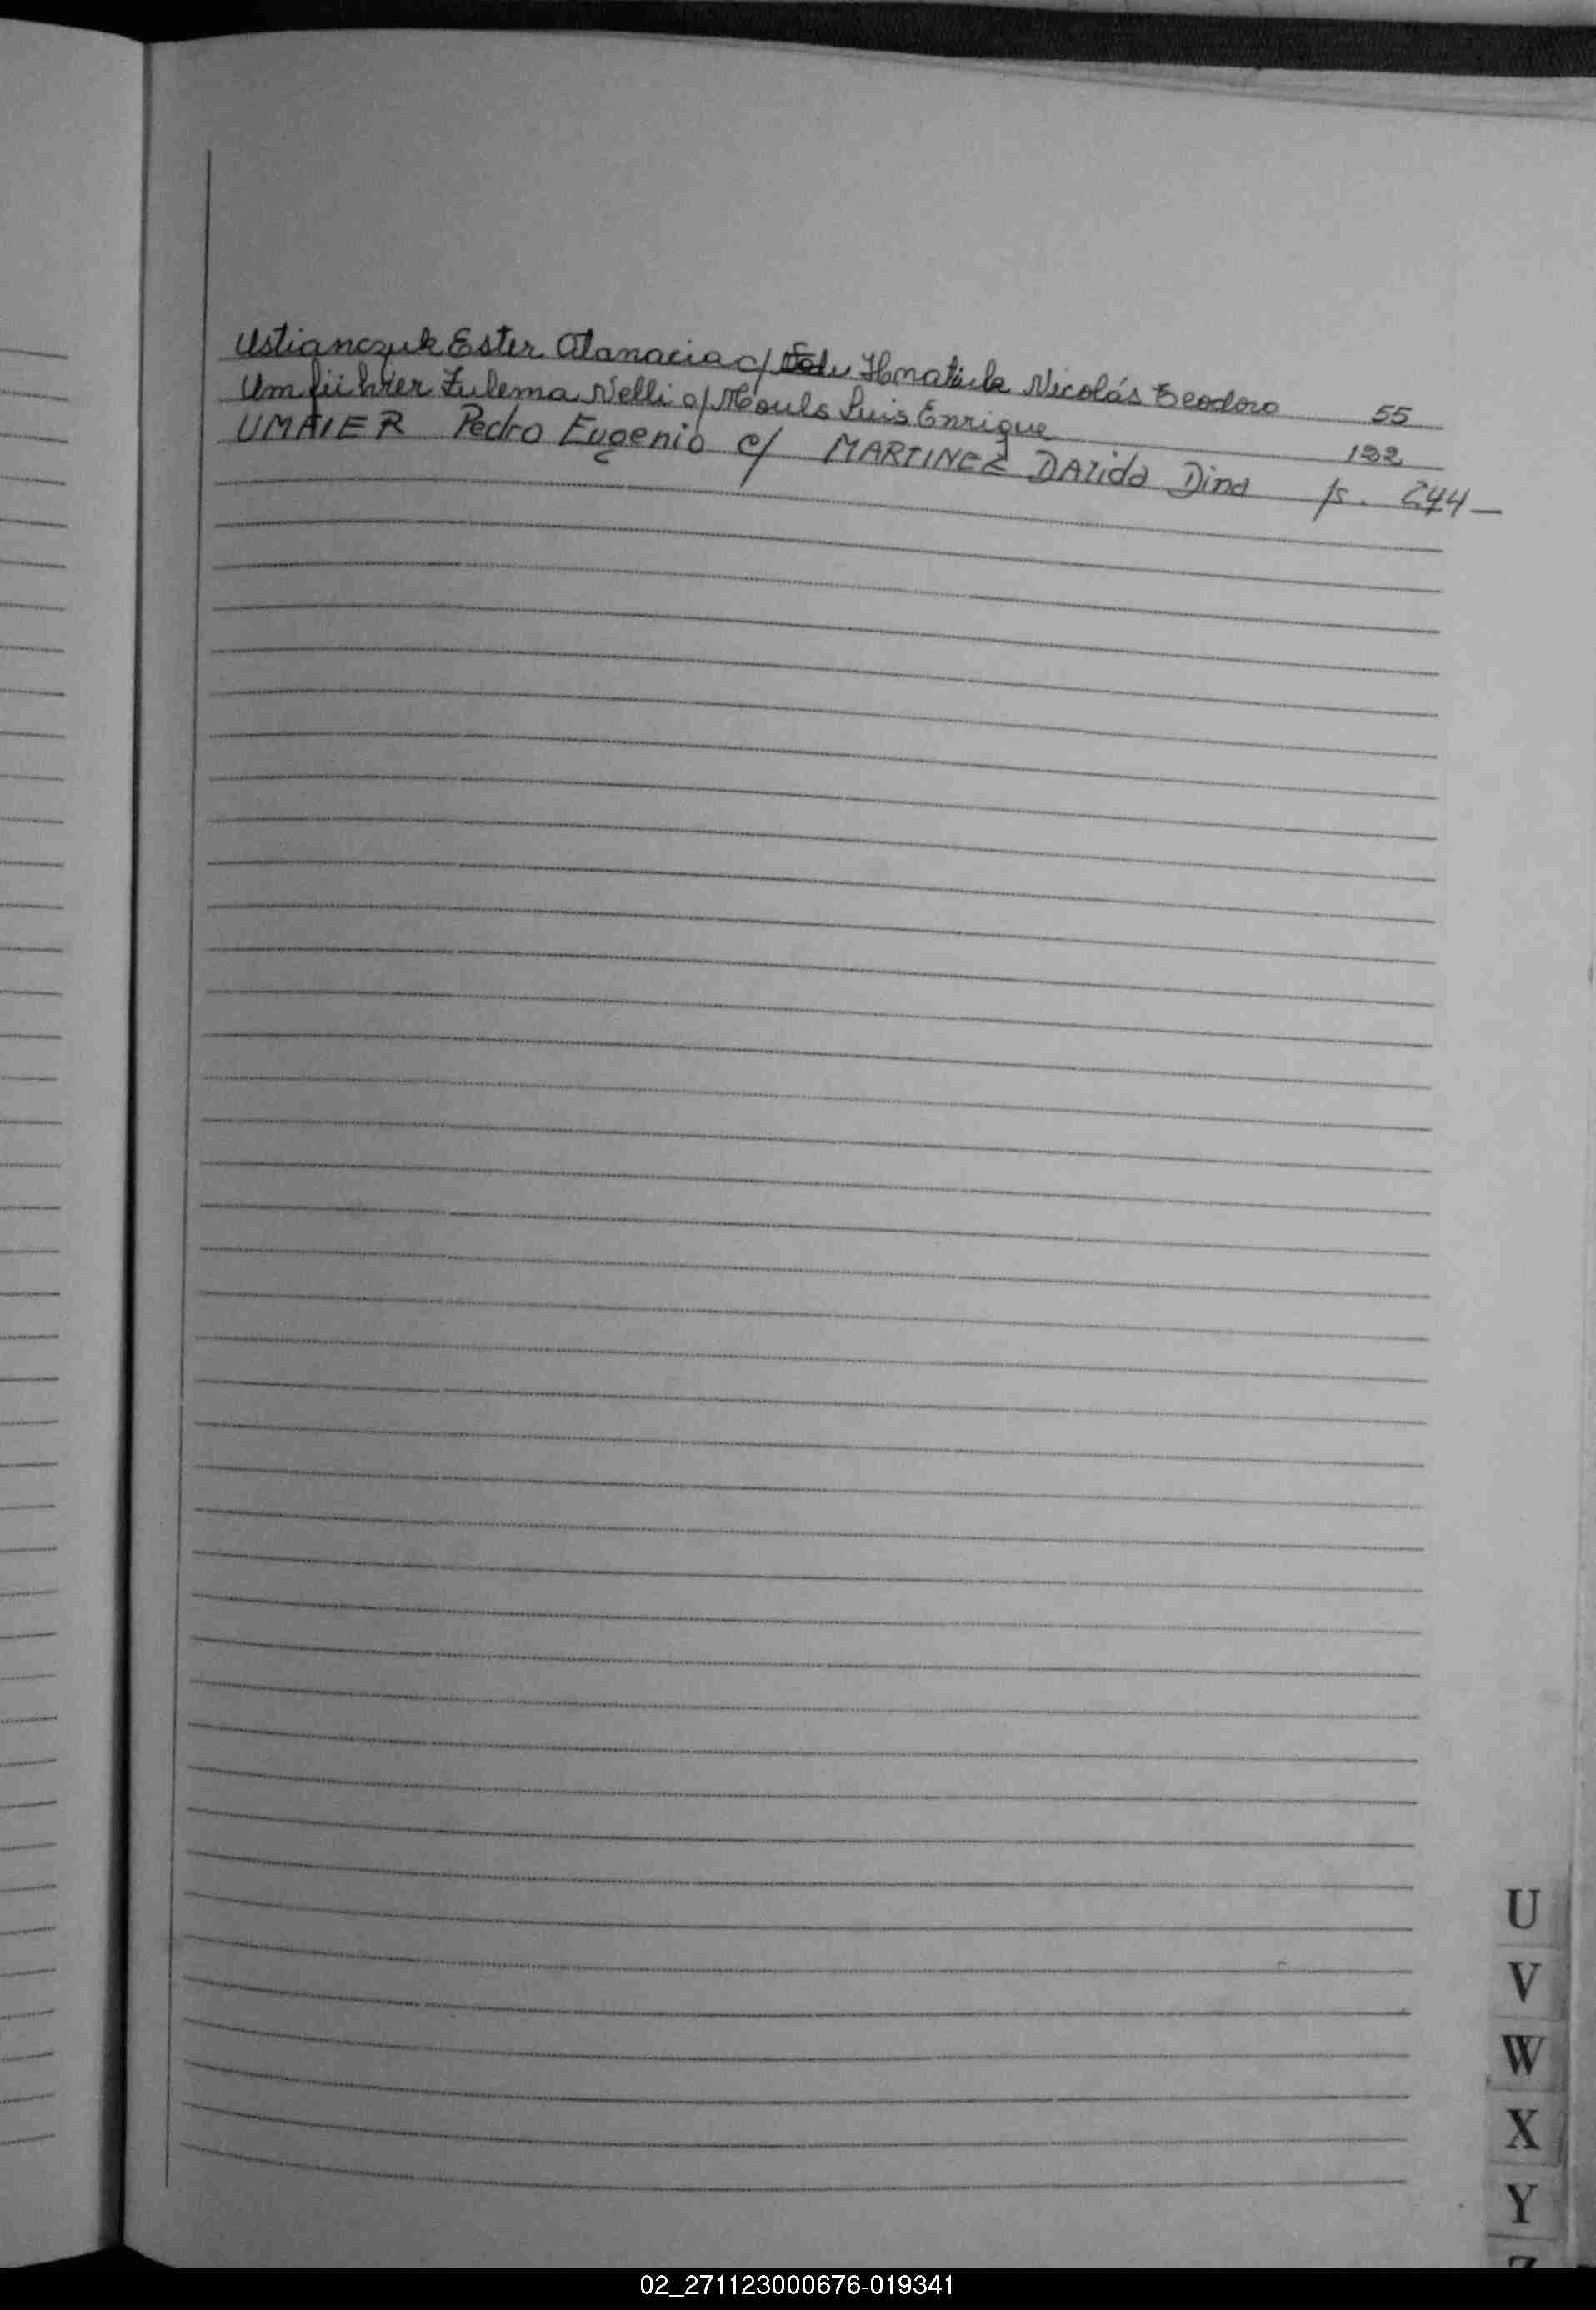 Ustianczuk Ester Atanacia c/ Hmatiuk Nicolás Teodoro 55
Umführer Zulema Nelli c/ Luis Enrique 132
UMAIER Pedro Eugenio c/ MARTINEZ DAlida Dina fs. 244 —
U
V
W
X
Y
Z
02_271123000676-019341